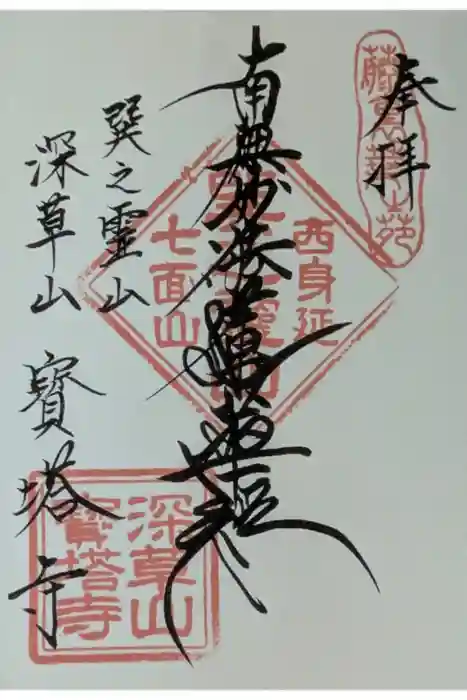 奉拝
南無妙法蓮華経
巽之靈山
深草山 寳塔寺
西身延
七面山
深草山
寳塔寺